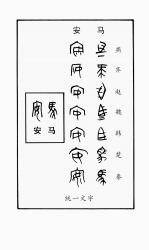 安 马
燕
齐
赵
魏
韩
楚
秦
安 马
统一文字